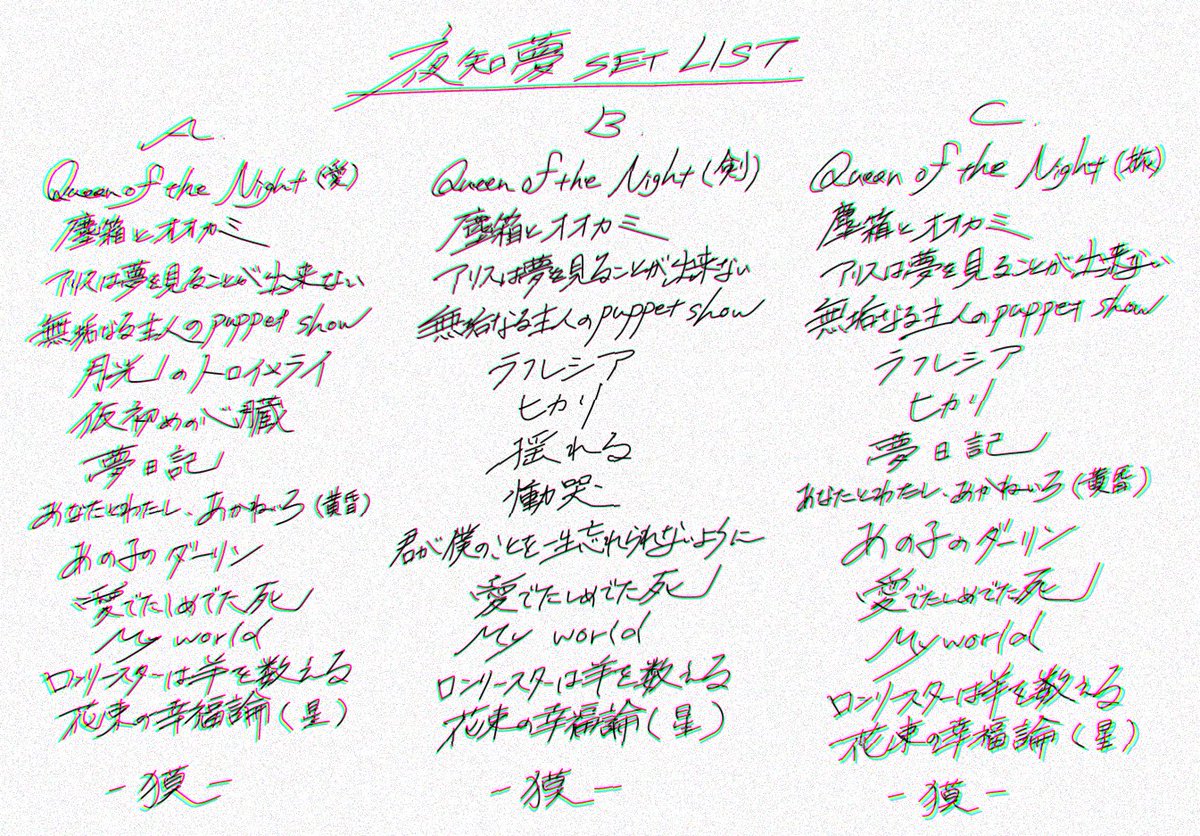 夜知夢 SET LIST
A
Queen of the Night (愛)
塵箱とオオカミ
アリスは夢を見ることが出来ない
無垢なる主人のpuppet show
月光のトロイメライ
仮初めの心臓
夢日記
あなたとわたし、あかねいろ (黄昏)
あの子のダーリン
愛でたしめでた死
My world
ロンリースターは羊を数える
花束の幸福論 (星)
-獏-
B
Queen of the Night (剣)
塵箱とオオカミ
アリスは夢を見ることが出来ない
無垢なる主人のpuppet show
ラフレシア
ヒカリ
揺れる
慟哭
君が僕のことを一生忘れられないように
愛でたしめでた死
My world
ロンリースターは羊を数える
花束の幸福論 (星)
-獏-
C
Queen of the Night
塵箱とオオカミ
アリスは夢を見ることが出来ない
無垢なる主人のpuppet show
ラフレシア
ヒカリ
夢日記
あなたとわたし、あかねいろ (黄昏)
あの子のダーリン
愛でたしめでた死
My world
ロンリースターは羊を数える
花束の幸福論 (星)
-獏-